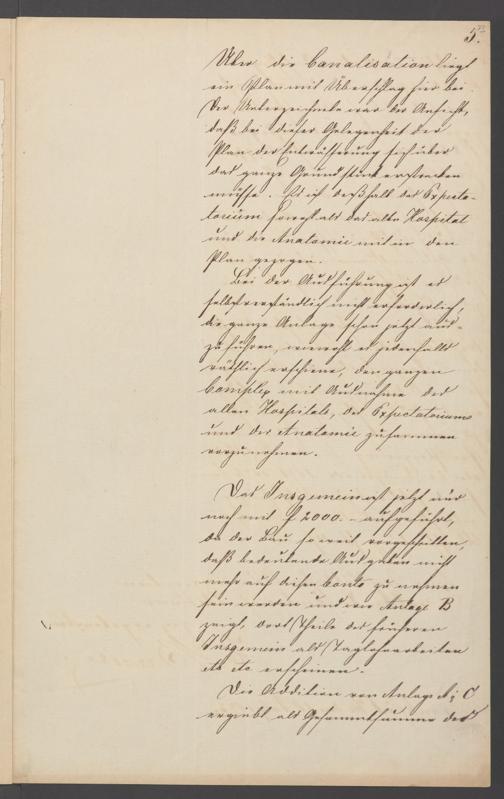 5.
Über die Canalisation liegt
ein Plan mit Überschlag hier bei.
Der Unterzeichnete war der Ansicht,
daß bei dieser Gelegenheit der
Plan der Entwässerung sich über
das ganze Grundstück erstrecken
müsse. Es ist deßhalb das Expecta-
torium sowohl als das alte Hospital
und die Anatomie mit in den
Plan gezogen.
Bei der Ausführung ist es
selbstverständlich nicht erforderlich,
die ganze Anlage schon jetzt aus-
zuführen, wiewohl es jedenfalls
räthlich erschiene, den ganzen
Complex mit Ausnahme des
alten Hospitals, des Expectatoriums
und der Anatomie zusammen
vorzunehmen.
Das Insgemein ist jetzt nur
noch mit f 2000.– aufgeführt,
da der Bau so weit vorgeschritten,
daß bedeutende Ausgaben nicht
mehr auf diesen Conto zu nehmen
sein werden und wie Anlage B
zeigt, dort Theile des früheren
Insgemein als Taglohnarbeiten
etc etc erscheinen.
Die Addition von Anlage A; C
ergiebt als Gesammtsumme des